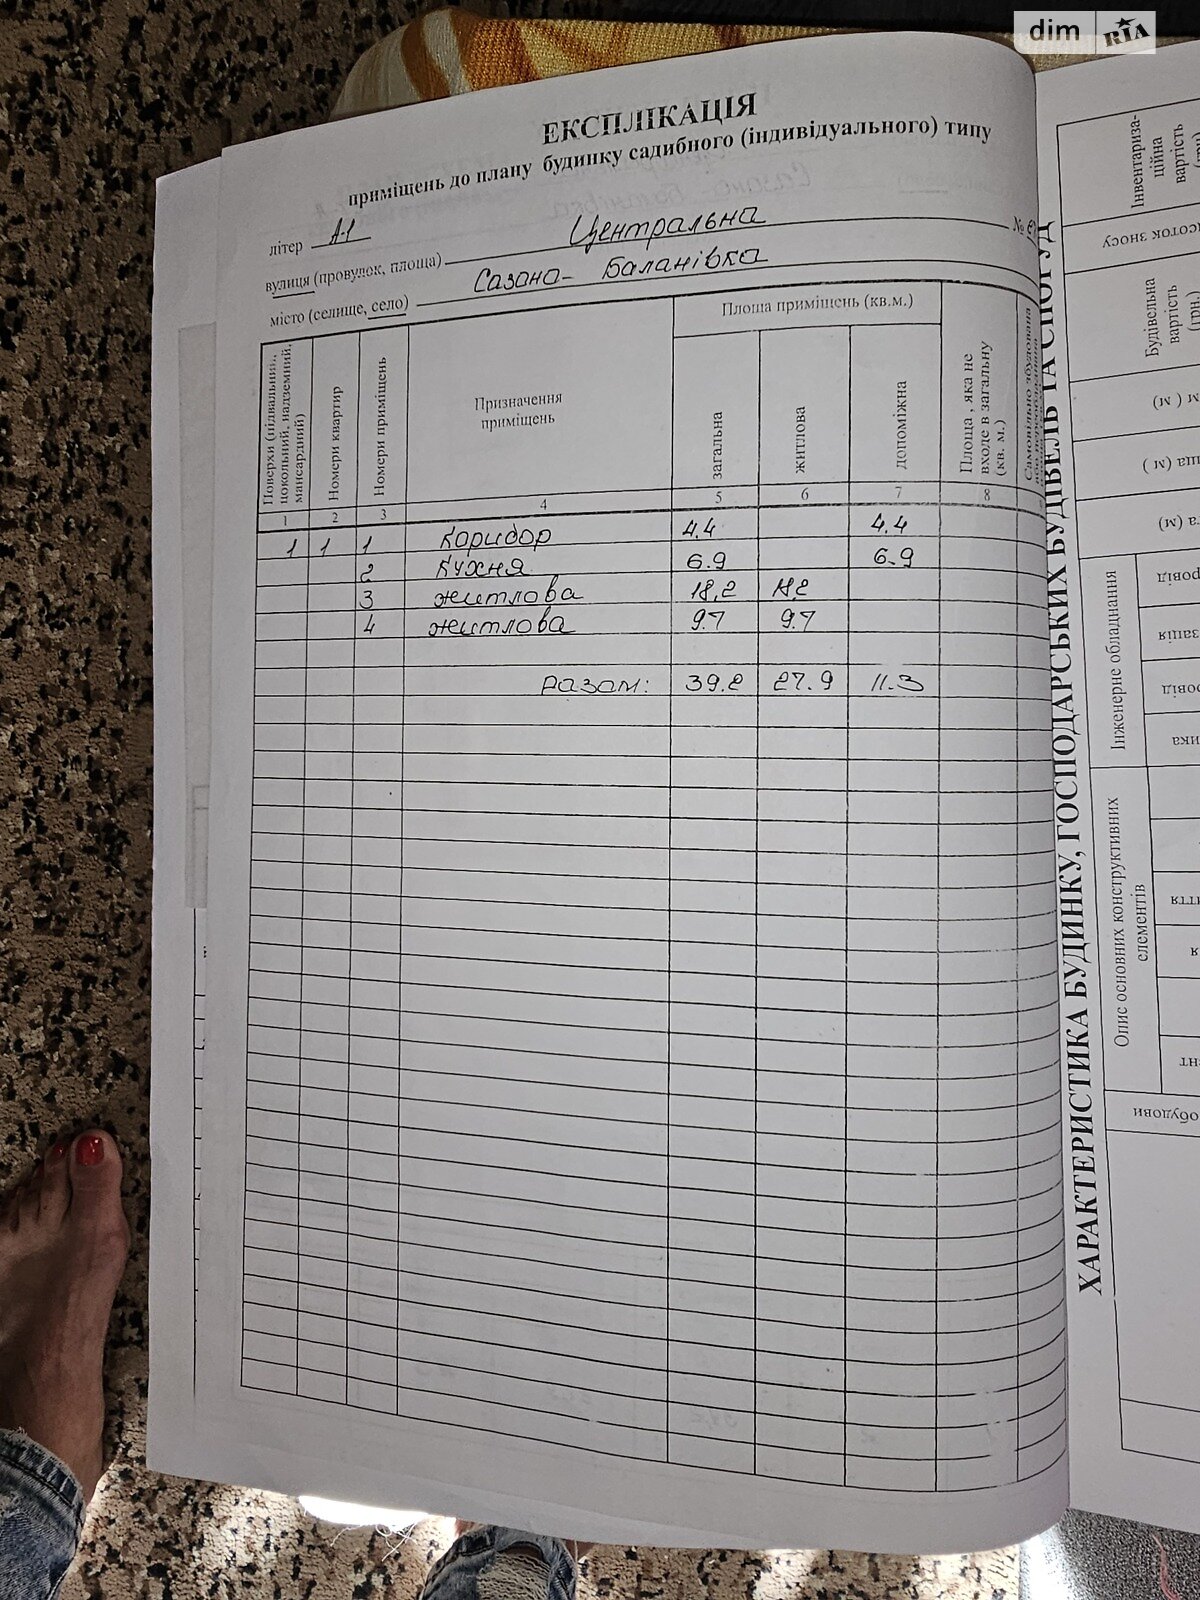 dim RIA
ЕКСПЛІКАЦІЯ
приміщень до плану будинку садибного (індивідуального) типу
літер А-1
вулиця (провулок, площа) Центральна №
місто (селище, село) Сазоно-Баланівка
Поверхи (підвальний, цокольний, надземний, мансардний)
Номери квартир
Номери приміщень
Призначення приміщень
Площа приміщень (кв.м.)
загальна
житлова
допоміжна
Площа, яка не входе в загальну (кв. м.)
1 2 3 4 5 6 7 8
1 1 1 Коридор 4.4 4.4
2 Кухня 6.9 6.9
3 житлова 18,2 18.2
4 житлова 9.7 9.7
Разом: 39.2 27.9 11.3
ХАРАКТЕРИСТИКА БУДИНКУ, ГОСПОДАРСЬКИХ БУДІВЕЛЬ ТА СПОРУД
Інвентариза-
ційна
вартість
(грн.)
Будівельна
вартість
(грн.)
Інженерне обладнання
Опис основних конструктивних
елементів